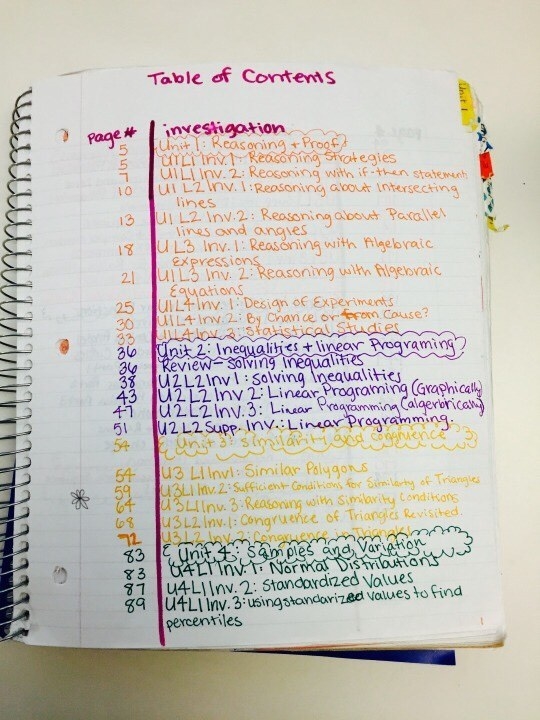 Table of Contents
Page # investigation
5 Unit 1: Reasoning + Proof
5 U1L1 Inv. 1: Reasoning Strategies
7 U1 L1 Inv. 2: Reasoning with if-then statements
10 U1 L2 Inv. 1: Reasoning about Intersecting
lines
13 U1 L2 Inv. 2: Reasoning about Parallel
lines and angles
18 U1 L3 Inv. 1: Reasoning with Algebraic
Expressions
21 U1 L3 Inv. 2: Reasoning with Algebraic
Equations
25 U1L4 Inv. 1: Design of Experiments
30 U1L4 Inv. 2: By Chance or from Cause?
33 U1L4 Inv. 3: Statistical Studies
36 Unit 2: Inequalities + linear Programing
36 Review - solving Inequalities
38 U2 L2 Inv 1: solving Inequalities
43 U2 L2 Inv. 2: Linear Programing (Graphically)
47 U2 L2 Inv. 3: Linear Programming (algerbrically)
51 U2 L2 Supp. Inv.: Linear Programming
54 Unit 3: Similarity and congruence
54 U3 L1 Inv1: Similar Polygons
59 U3L1 Inv. 2: Sufficient Conditions for Similarity of Triangles
64 U3L1 Inv. 3: Reasoning with Similarity Conditions
68 U3 L2 Inv. 1: Congruence of Triangles Revisited
72 U3 L2 Inv. 2: Congruence in Triangles
83 Unit 4: Samples and Variation
83 U4L1 Inv. 1: Normal Distributions
87 U4L1 Inv. 2: Standardized Values
89 U4L1 Inv. 3: using standarized values to find
percentiles
1
Unit 1